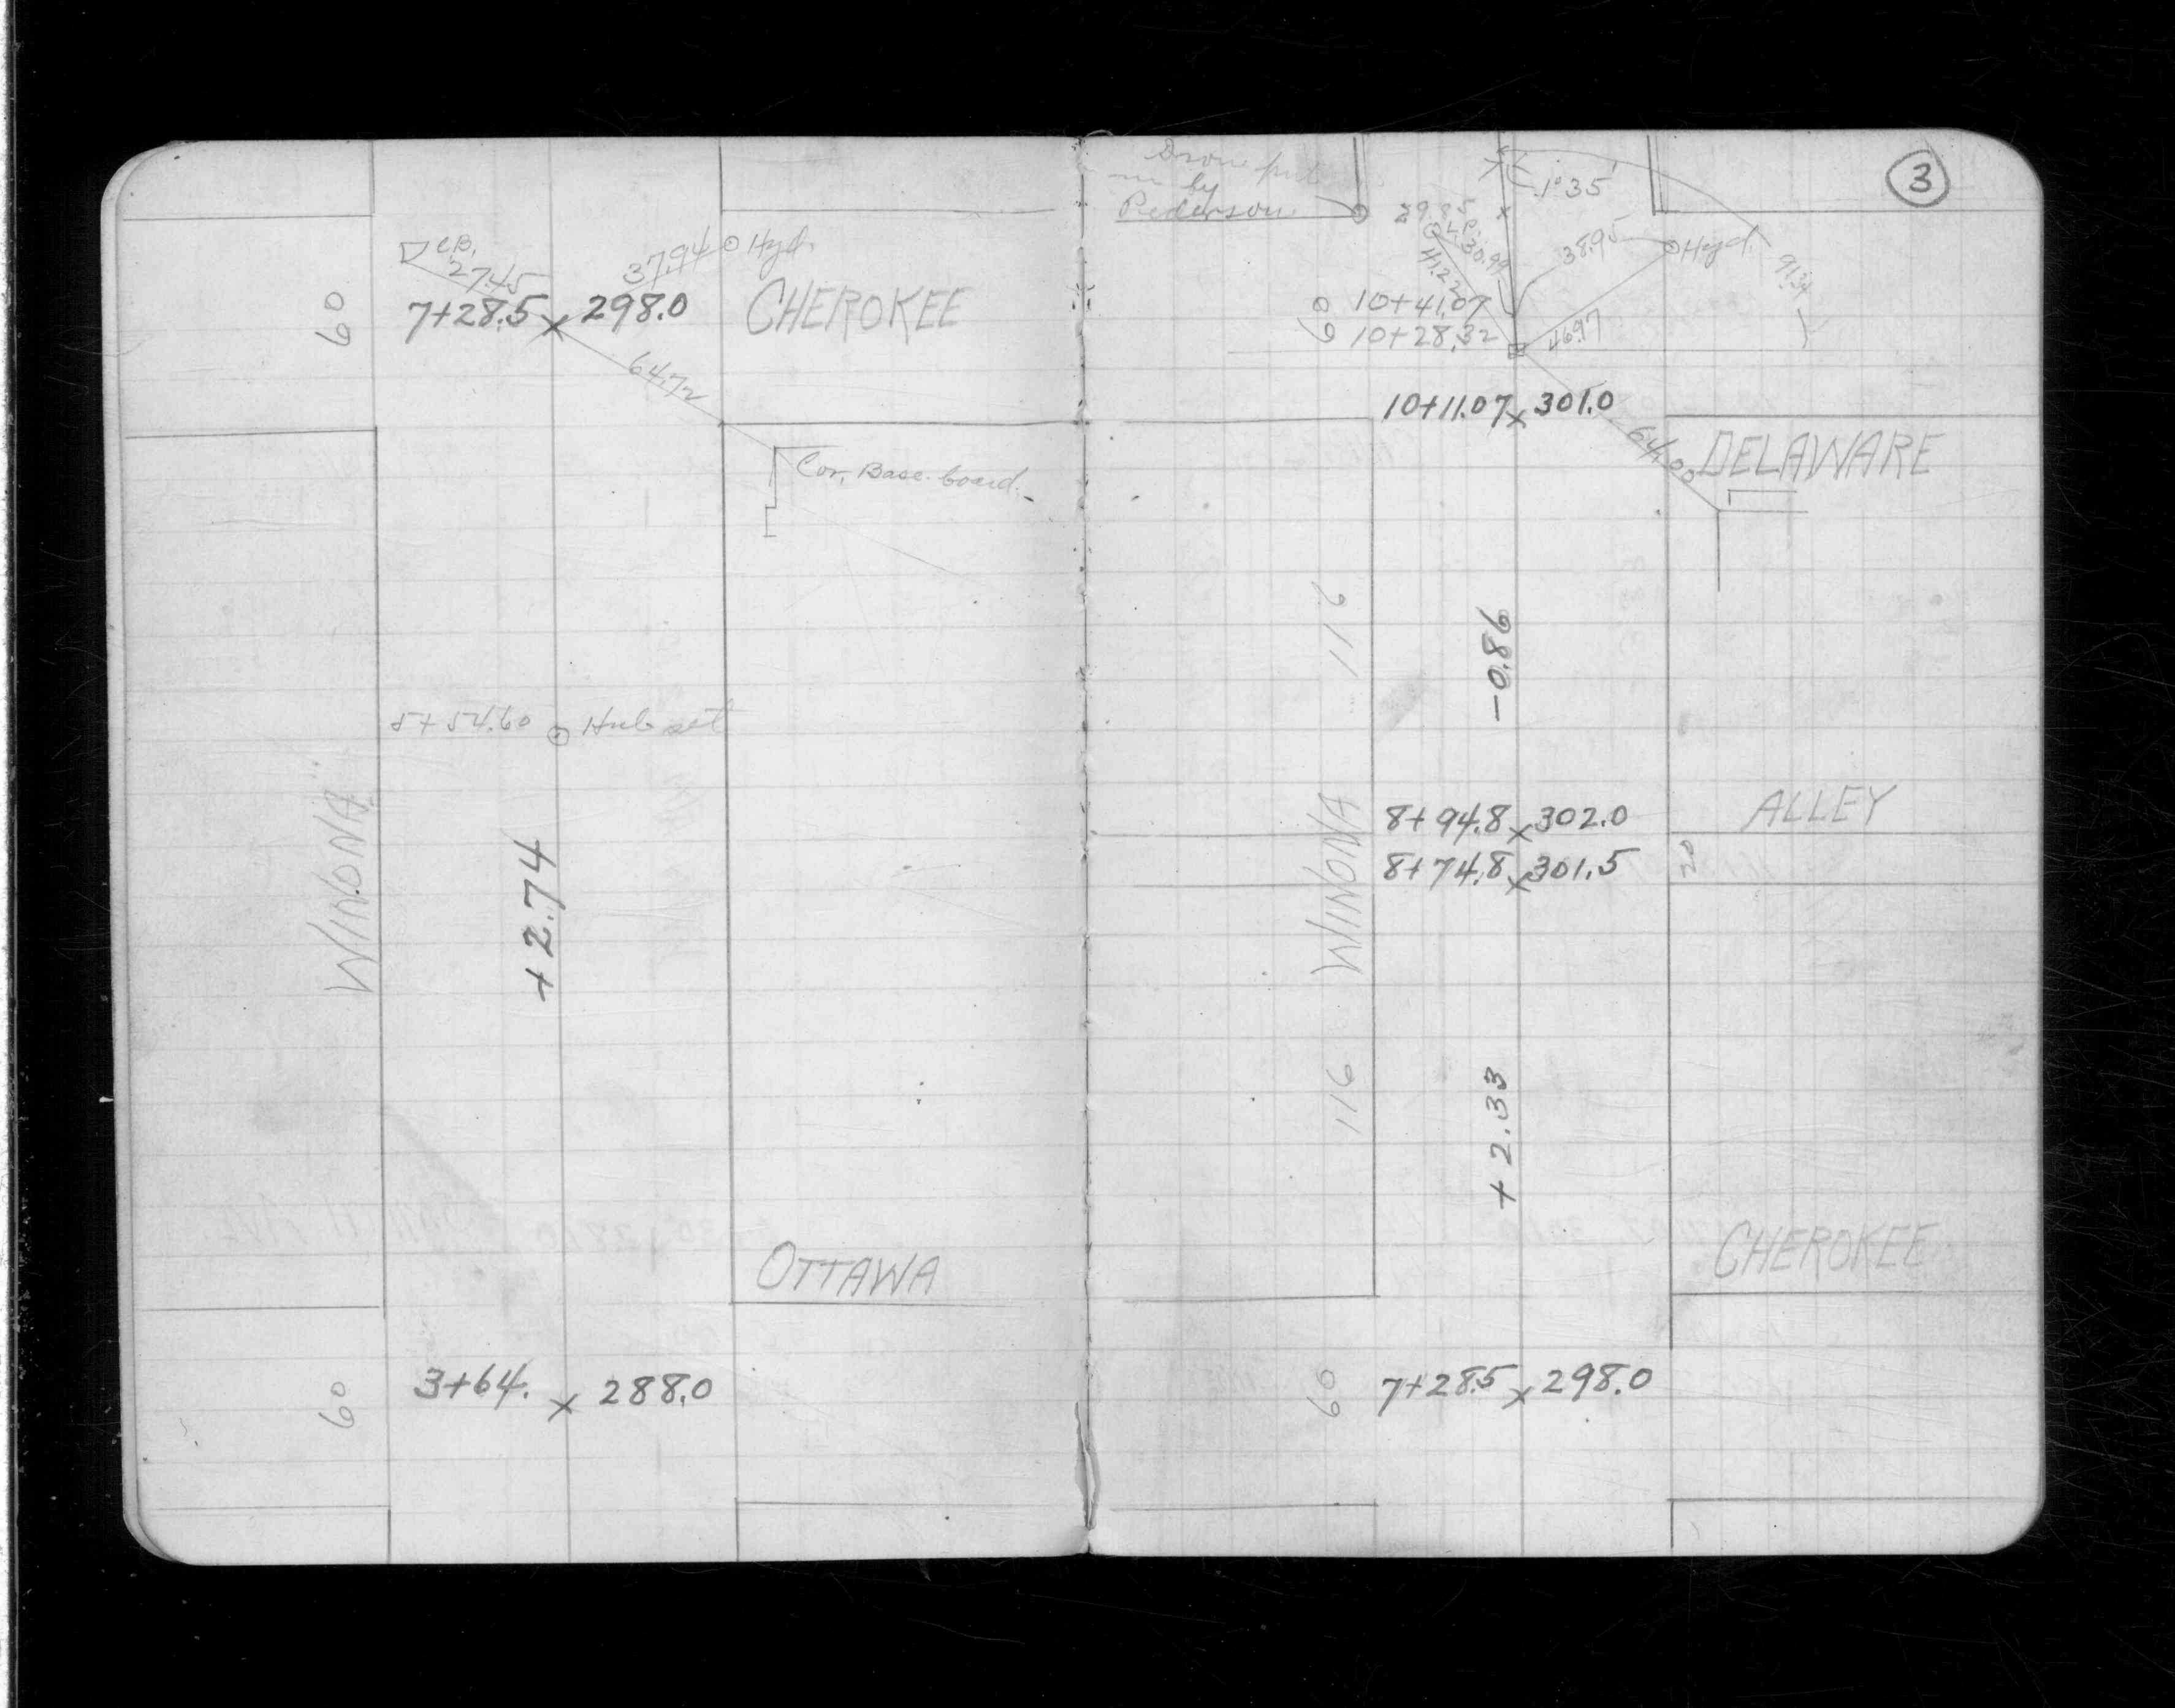 C.B.
27.45
37.94 Hyd.
60
7+28.5 x 298.0 CHEROKEE
64.72
Cor. Base board.
5+54.60 Hub set
WINONA
+2.74
OTTAWA
60
3+64. x 288.0
3
by
Pederson
1°35'
38.95
Hyd.
91.34
30.99
41.22
60
10+41.07
10+28.32
46.97
10+11.07 x 301.0
64.00
DELAWARE
116
-0.86
ALLEY
8+94.8 x 302.0
8+74.8 x 301.5
20
WINONA
116
+2.33
CHEROKEE
60
7+28.5 x 298.0